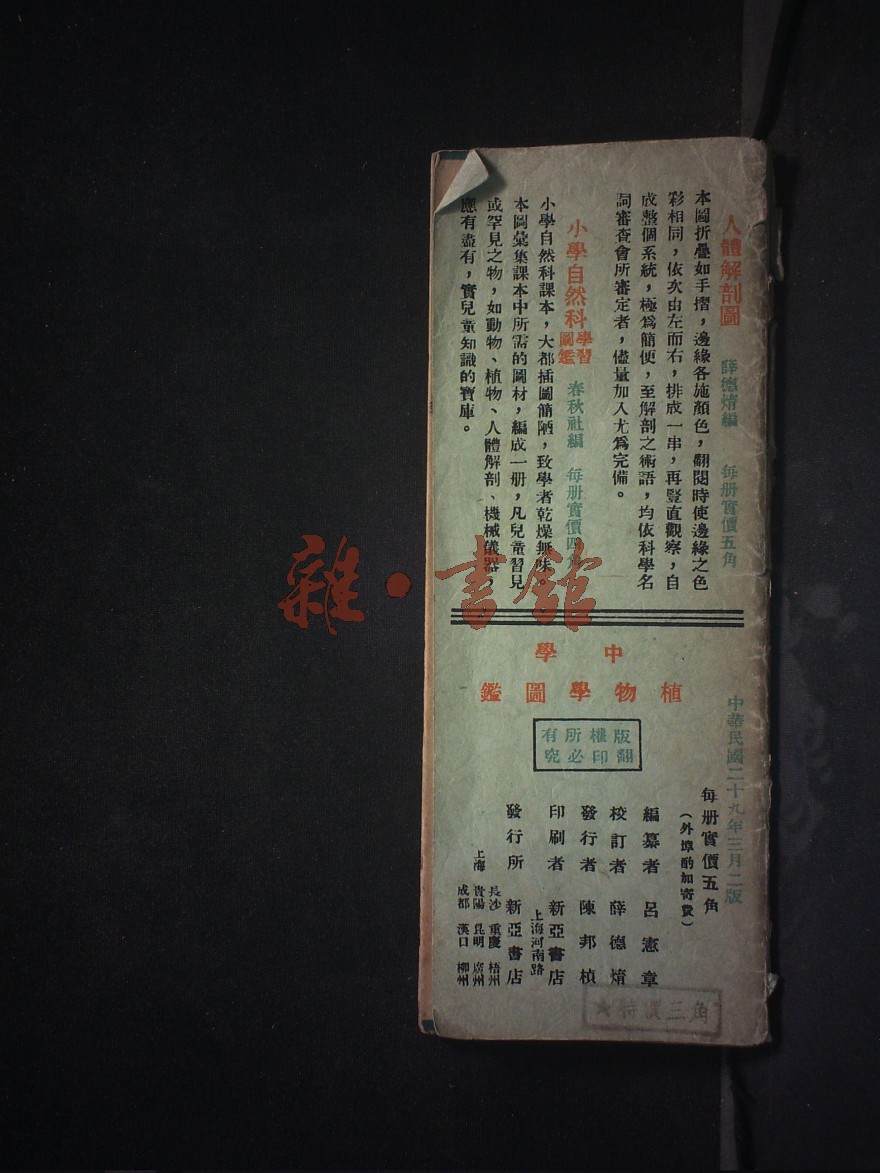 人體解剖圖 薛德焴編 每册實價五角
本圖折疊如手摺，邊緣各施顏色，翻閱時使邊緣之色
彩相同，依次由左而右，排成一串，再豎直觀察，自
成整個系統，極爲簡便，至解剖之術語，均依科學名
詞審查會所審定者，儘量加入尤爲完備。
小學自然科學習圖鑑 春秋社編 每册實價四角
小學自然科課本，大都插圖簡陋，致學者乾燥無味。
本圖彙集課本中所需的圖材，編成一册，凡兒童習見
或罕見之物，如動物、植物、人體解剖、機械儀器，
應有盡有，實兒童知識的寶庫。
雜·書館
中學
植物學圖鑑
版權所有
翻印必究
中華民國二十九年三月二版
每册實價五角
（外埠酌加寄費）
編纂者 呂憲章
校訂者 薛德焴
發行者 陳邦楨
印刷者 新亞書店
上海河南路
發行所 新亞書店
長沙 重慶 梧州
上海 貴陽 昆明 廣州
成都 漢口 柳州
★特價三角